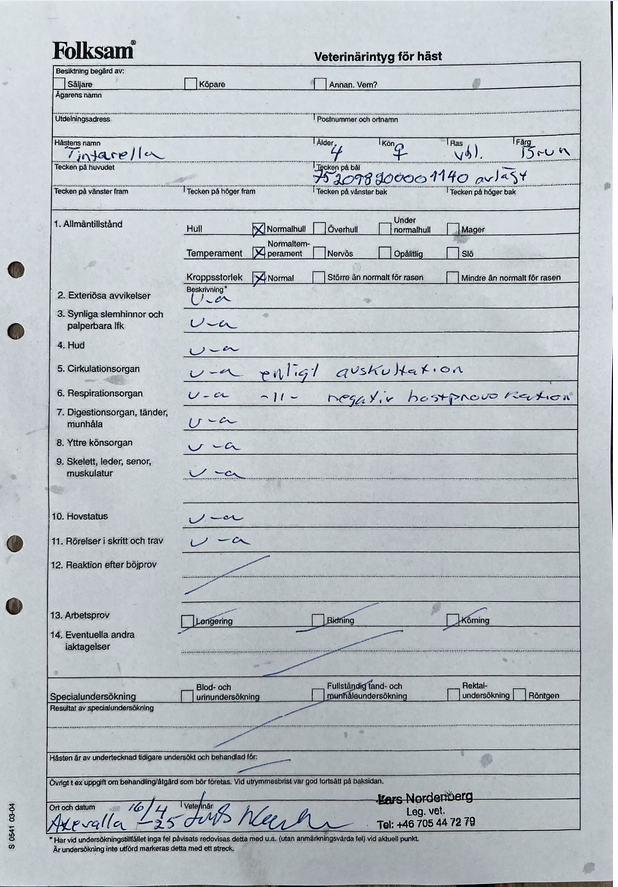 Folksam
Veterinärintyg för häst
Besiktning begärd av:
Säljare Köpare Annan. Vem?
Ägarens namn
Utdelningsadress Postnummer och ortnamn
Hästens namn Ålder Kön Ras Färg
Tintarella 4 ♀ vbl. Brun
Tecken på huvudet Tecken på bål
752098200001140 avläst
Tecken på vänster fram Tecken på höger fram Tecken på vänster bak Tecken på höger bak
1. Allmäntillstånd Hull Normalhull Överhull Under normalhull Mager
Temperament Normaltemperament Nervös Opålitlig Slö
Kroppsstorlek Normal Större än normalt för rasen Mindre än normalt för rasen
Beskrivning*
2. Exteriösa avvikelser u-a
3. Synliga slemhinnor och
palperbara lfk u-a
4. Hud u-a
5. Cirkulationsorgan u-a enligt auskultation
6. Respirationsorgan u-a -11- negativ hostprovokation
7. Digestionsorgan, tänder,
munhåla u-a
8. Yttre könsorgan u-a
9. Skelett, leder, senor,
muskulatur u-a
10. Hovstatus u-a
11. Rörelser i skritt och trav u-a
12. Reaktion efter böjprov
13. Arbetsprov Longering Ridning Körning
14. Eventuella andra
iaktagelser
Specialundersökning Blod- och urinundersökning Fullständig tand- och munhåleundersökning Rektal-undersökning Röntgen
Resultat av specialundersökning
Hästen är av undertecknad tidigare undersökt och behandlad för:
Övrigt t ex uppgift om behandling/åtgärd som bör företas. Vid utrymmesbrist var god fortsätt på baksidan.
Ort och datum Veterinär
Axevalla 16/4 -25
Lars Nordenberg
Leg. vet.
Tel: +46 705 44 72 79
* Har vid undersökningstillfället inga fel påvisats redovisas detta med u.a. (utan anmärkningsvärda fel) vid aktuell punkt.
Är undersökning inte utförd markeras detta med ett streck.
S 0541 03-04